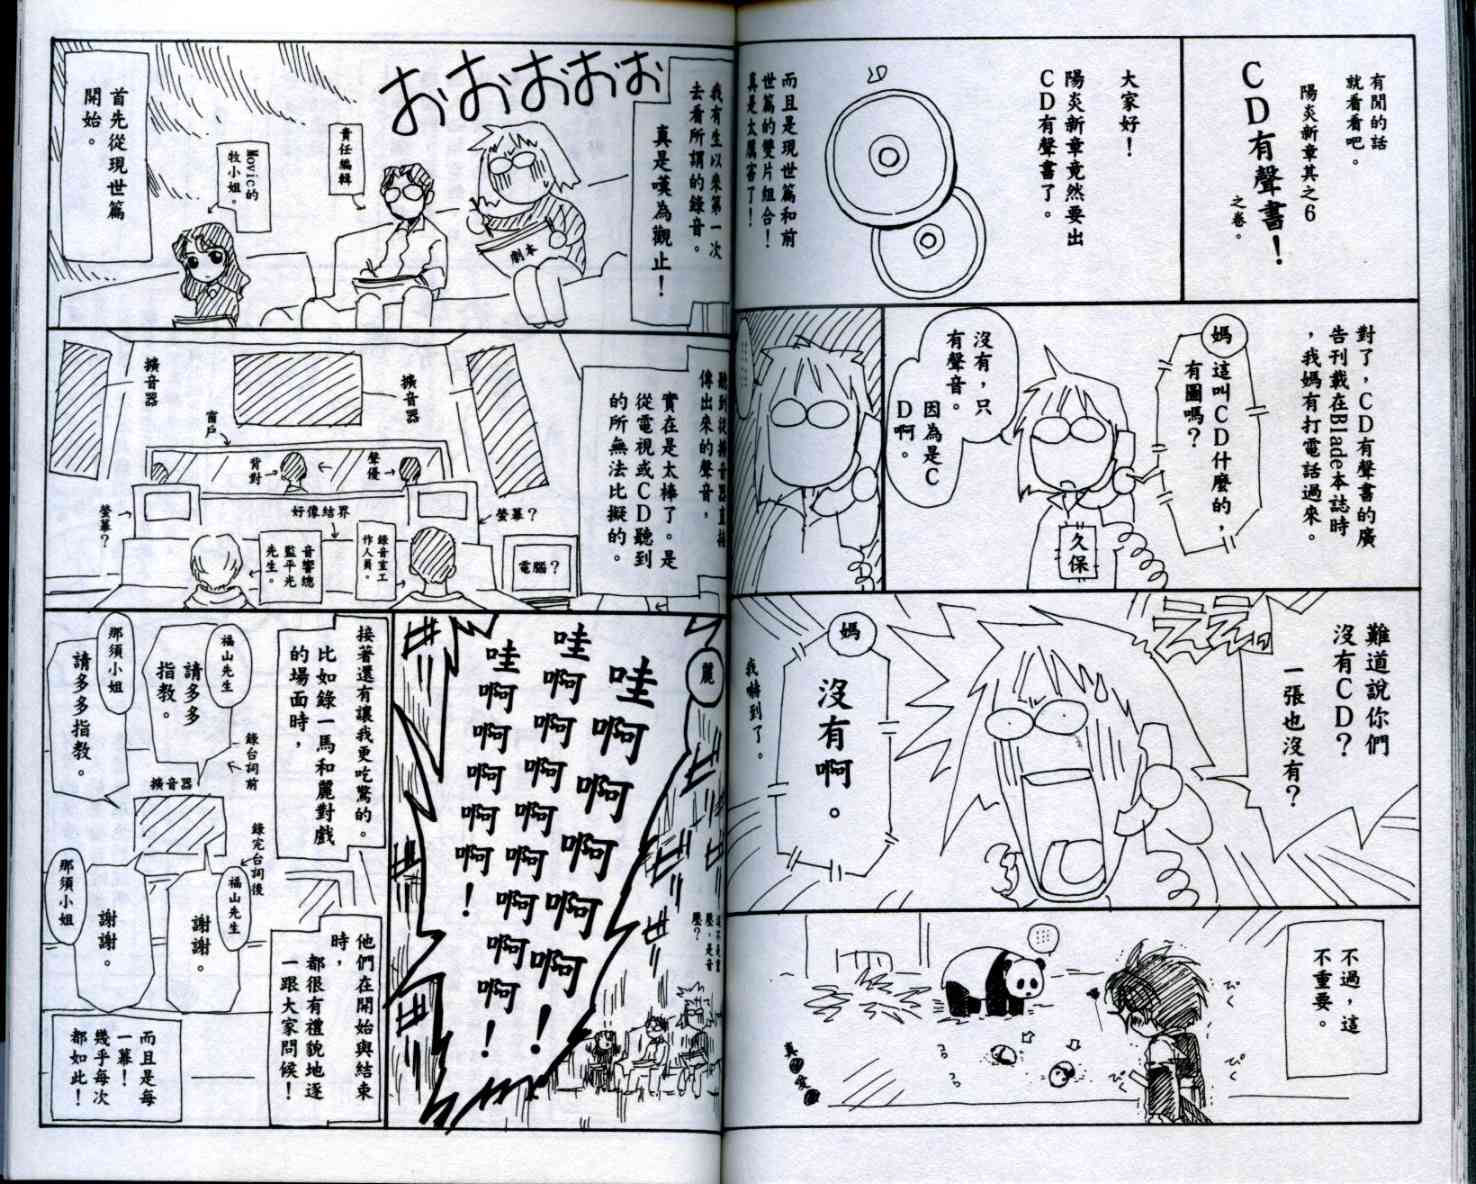 有閒的話
就看看吧。
陽炎新章其之6
CD有聲書！
之卷。
大家好！
陽炎新章竟然要出
CD有聲書了。
而且是現世篇和前
世篇的雙片組合！
真是太厲害了！
對了，CD有聲書的廣
告刊載在Blade本誌時
，我媽有打電話過來。
媽
這叫CD什麼的，
有圖嗎？
久保
沒有，只
有聲音。
因為是C
D啊。
難道說你們
沒有CD？
一張也沒有？
ええっ
媽
沒有啊。
我嚇到了。
不過，這
不重要。
ぴく
ぴく
ぴく
我有生以來第一次
去看所謂的錄音。
真是嘆為觀止！
おおおおお
劇本
責任編輯
Movic的
牧小姐。
首先從現世篇
開始。
聽到從擴音器直接
傳出來的聲音，
實在是太棒了。是
從電視或CD聽到
的所無法比擬的。
擴音器
擴音器
窗戶
背對
聲優
螢幕？
好像結界
螢幕？
音響總
監平光
先生。
錄音室工
作人員。
電腦？
麗
哇啊啊啊啊啊啊！
哇啊啊啊啊啊啊！
哇啊啊啊啊啊！
接著還有讓我更吃驚的。
比如錄一馬和麗對戲
的場面時，
福山先生
請多多
指教。
那須小姐
請多多指教。
錄台詞前
擴音器
錄完台詞後
福山先生
謝謝。
那須小姐
謝謝。
他們在開始與結束
時，
都很有禮貌地逐
一跟大家問候！
而且是每
一幕！
幾乎每次
都如此！